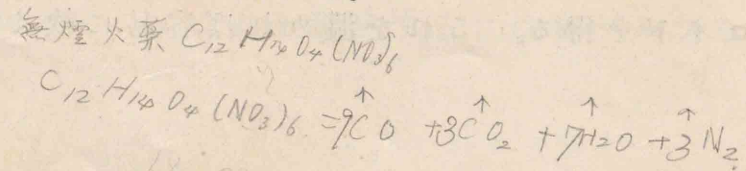 無煙火薬 C₁₂H₁₄O₄(NO₃)₆
C₁₂H₁₄O₄(NO₃)₆=9CO↑+3CO₂↑+7H₂O↑+3N₂↑